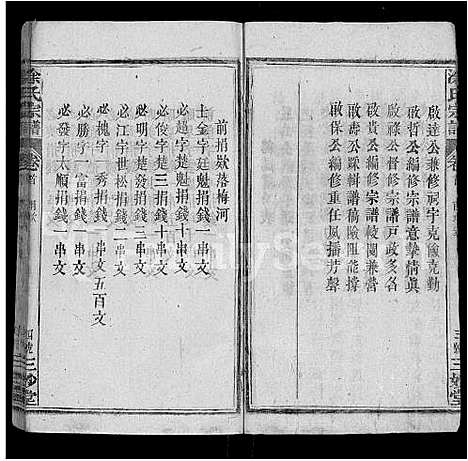 涂氏宗譜
啟達公兼修祠宇克儉克勤
啟哲公編修宗譜意摯情眞
啟祿公督修宗譜戸政多名
啟壽公編輯譜稿險阻能撐
啟保公編修重任鳳播芳聲
三妙堂
涂氏宗譜
卷首
前捐欵落梅河
士金字廷魁捐錢一串文
必超字楚魁捐錢十串文
必俊字楚三捐錢十串文
必明字楚發捐錢三串文
必江字世松捐錢二串文
必槐字 秀捐錢一串文五百文
必勝字一富捐錢一串文
必發字太順捐錢一串文
四號
三妙堂